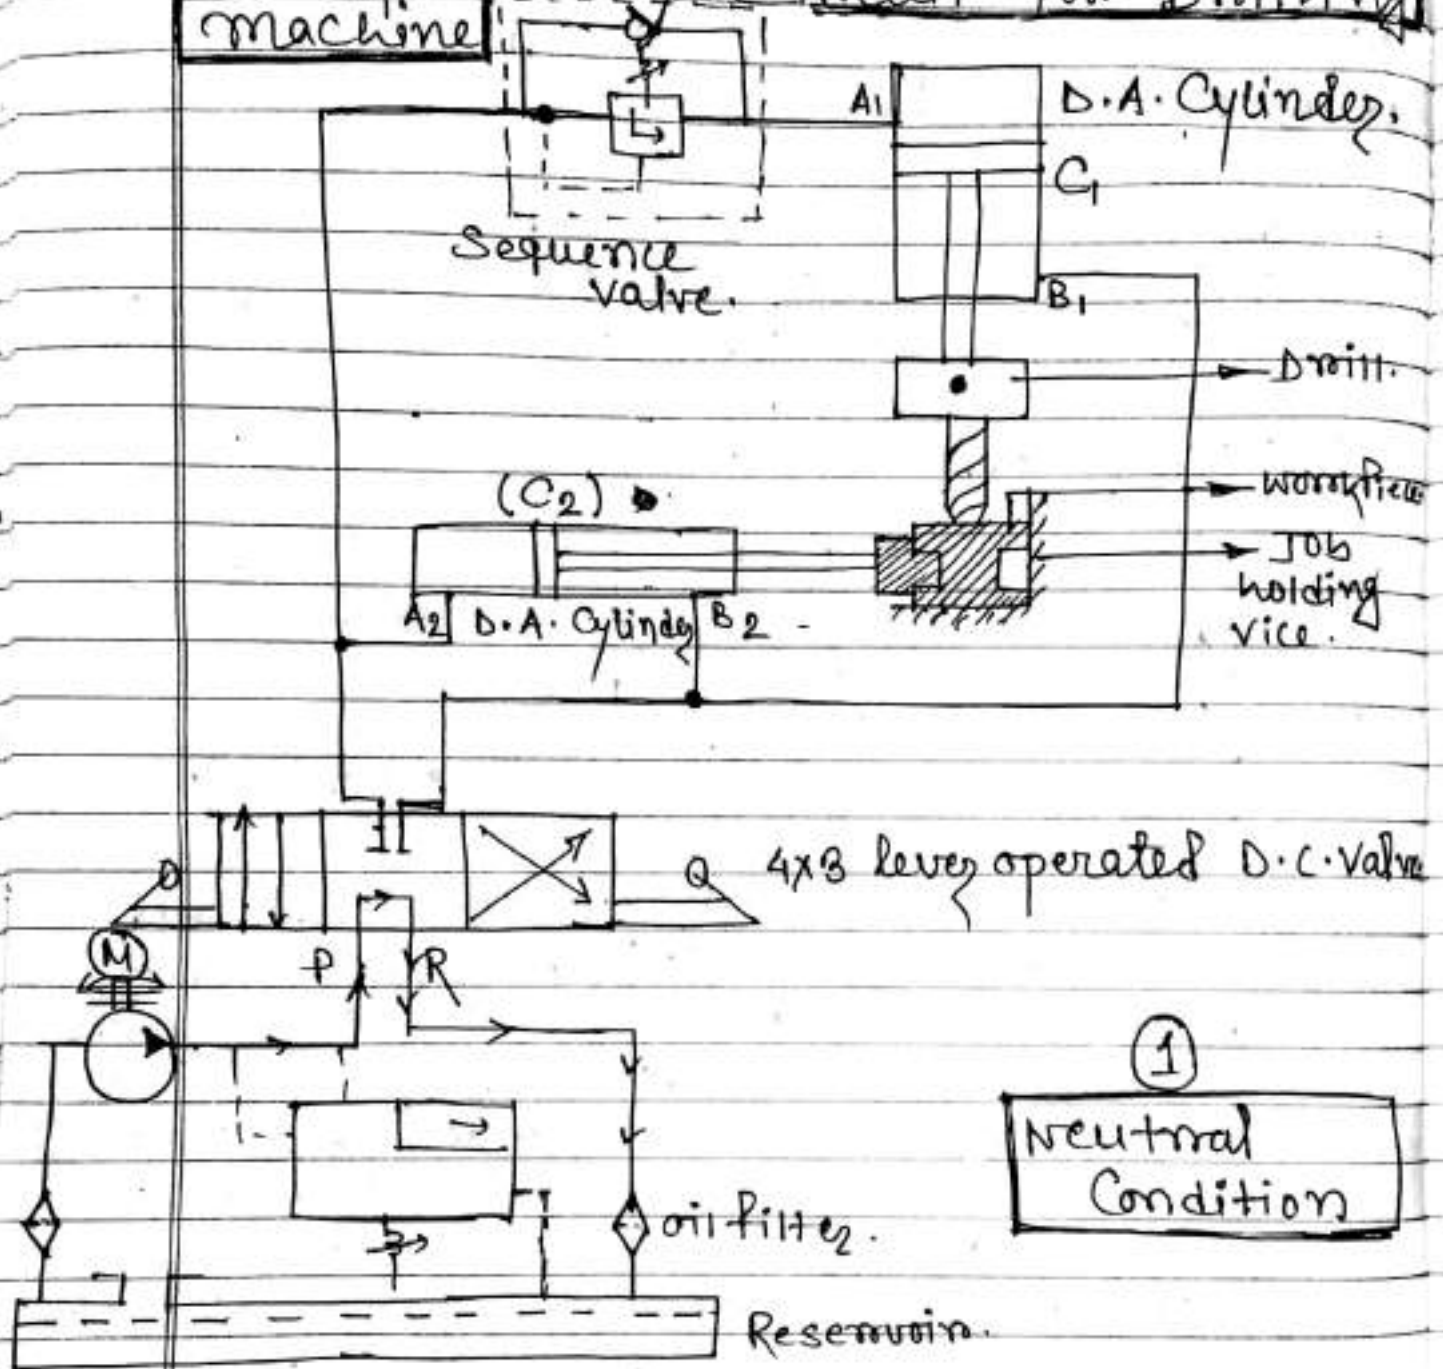 machine
A1
D.A. Cylinder.
C1
Sequence
valve.
B1
Drill.
(C2)
workpiece
Job
holding
vice.
A2
D.A. Cylinder
B2
4x3 lever operated D.C. valve
M
P
R
1
Neutral
Condition
oil filter.
Reservoir.